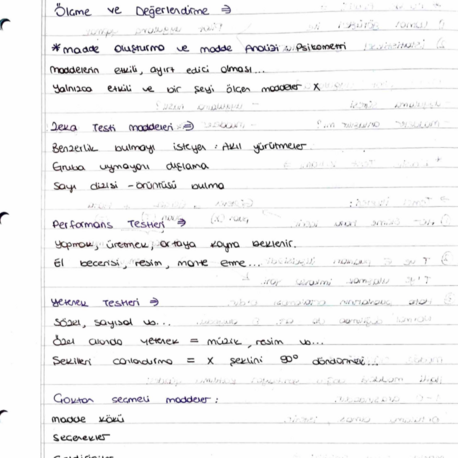 Ölçme ve Değerlendirme ⇒
* madde oluşturma ve madde Analizi Psikometri
maddelerin etkili, ayırt edici olması...
Yalnızca etkili ve bir şeyi ölçen maddeler X
Zeka Testi maddeleri ⇒
Benzerlik bulmayı isteyen, Akıl yürütmeler
Gruba uymayanı dışlama
Sayı dizisi - örüntüsü bulma
Performans Testleri ⇒
Yapmak, üretmek, ortaya koyma beklenir.
El becerisi, resim, monte etme...
Yetenek Testleri ⇒
Sözel, sayısal vb...
Özel alanda yetenek = müzik, resim vb...
Şekilleri canlandırma = X şeklini 90° döndürmesi...
Çoktan seçmeli maddeler :
madde kökü
Seçenekler